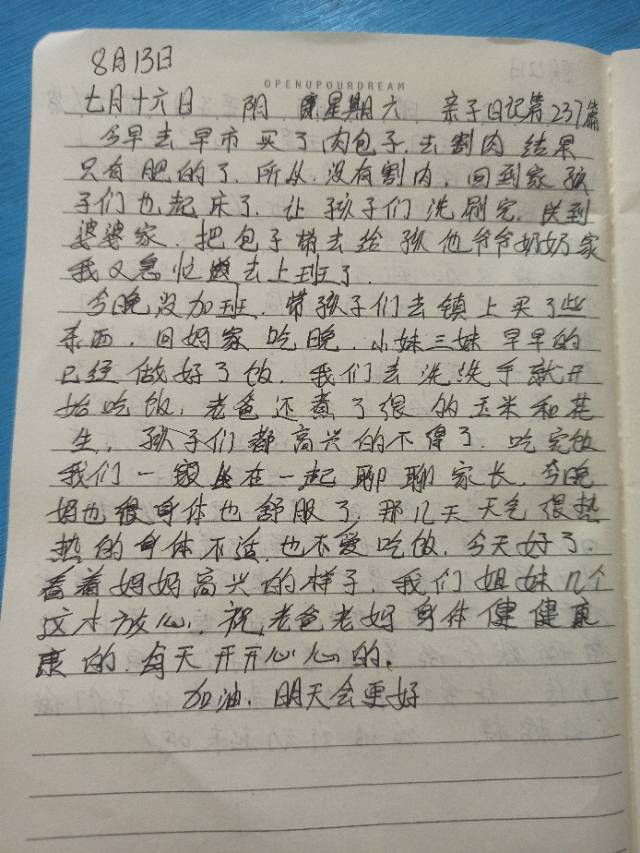 8月13日
OPENUPOURDREAM
七月十六日 阴 星期六 亲子日记第237篇
今早去早市买了肉包子,去割肉结果
只有肥的了.所以.没有割肉.回到家孩
子们也起床了.让孩子们洗刷完.送到
婆婆家.把包子捎去给孩他爷爷奶奶家
我又急忙去上班了.
今晚没加班.带孩子们去镇上买了些
东西.回妈家吃晚.小妹三妹早早的
已经做好了饭.我们去洗洗手就开
始吃饭,老爸还煮了很的玉米和花
生,孩子们都高兴的不得了.吃完饭
我们一家坐在一起聊聊家长.今晚
妈也很身体也舒服了.那几天天气很热
热的身体不适.也不爱吃饭.今天好了.
看着妈妈高兴的样子.我们姐妹几个
这才放心.祝老爸老妈身体健健
康的.每天开开心心的.
加油.明天会更好